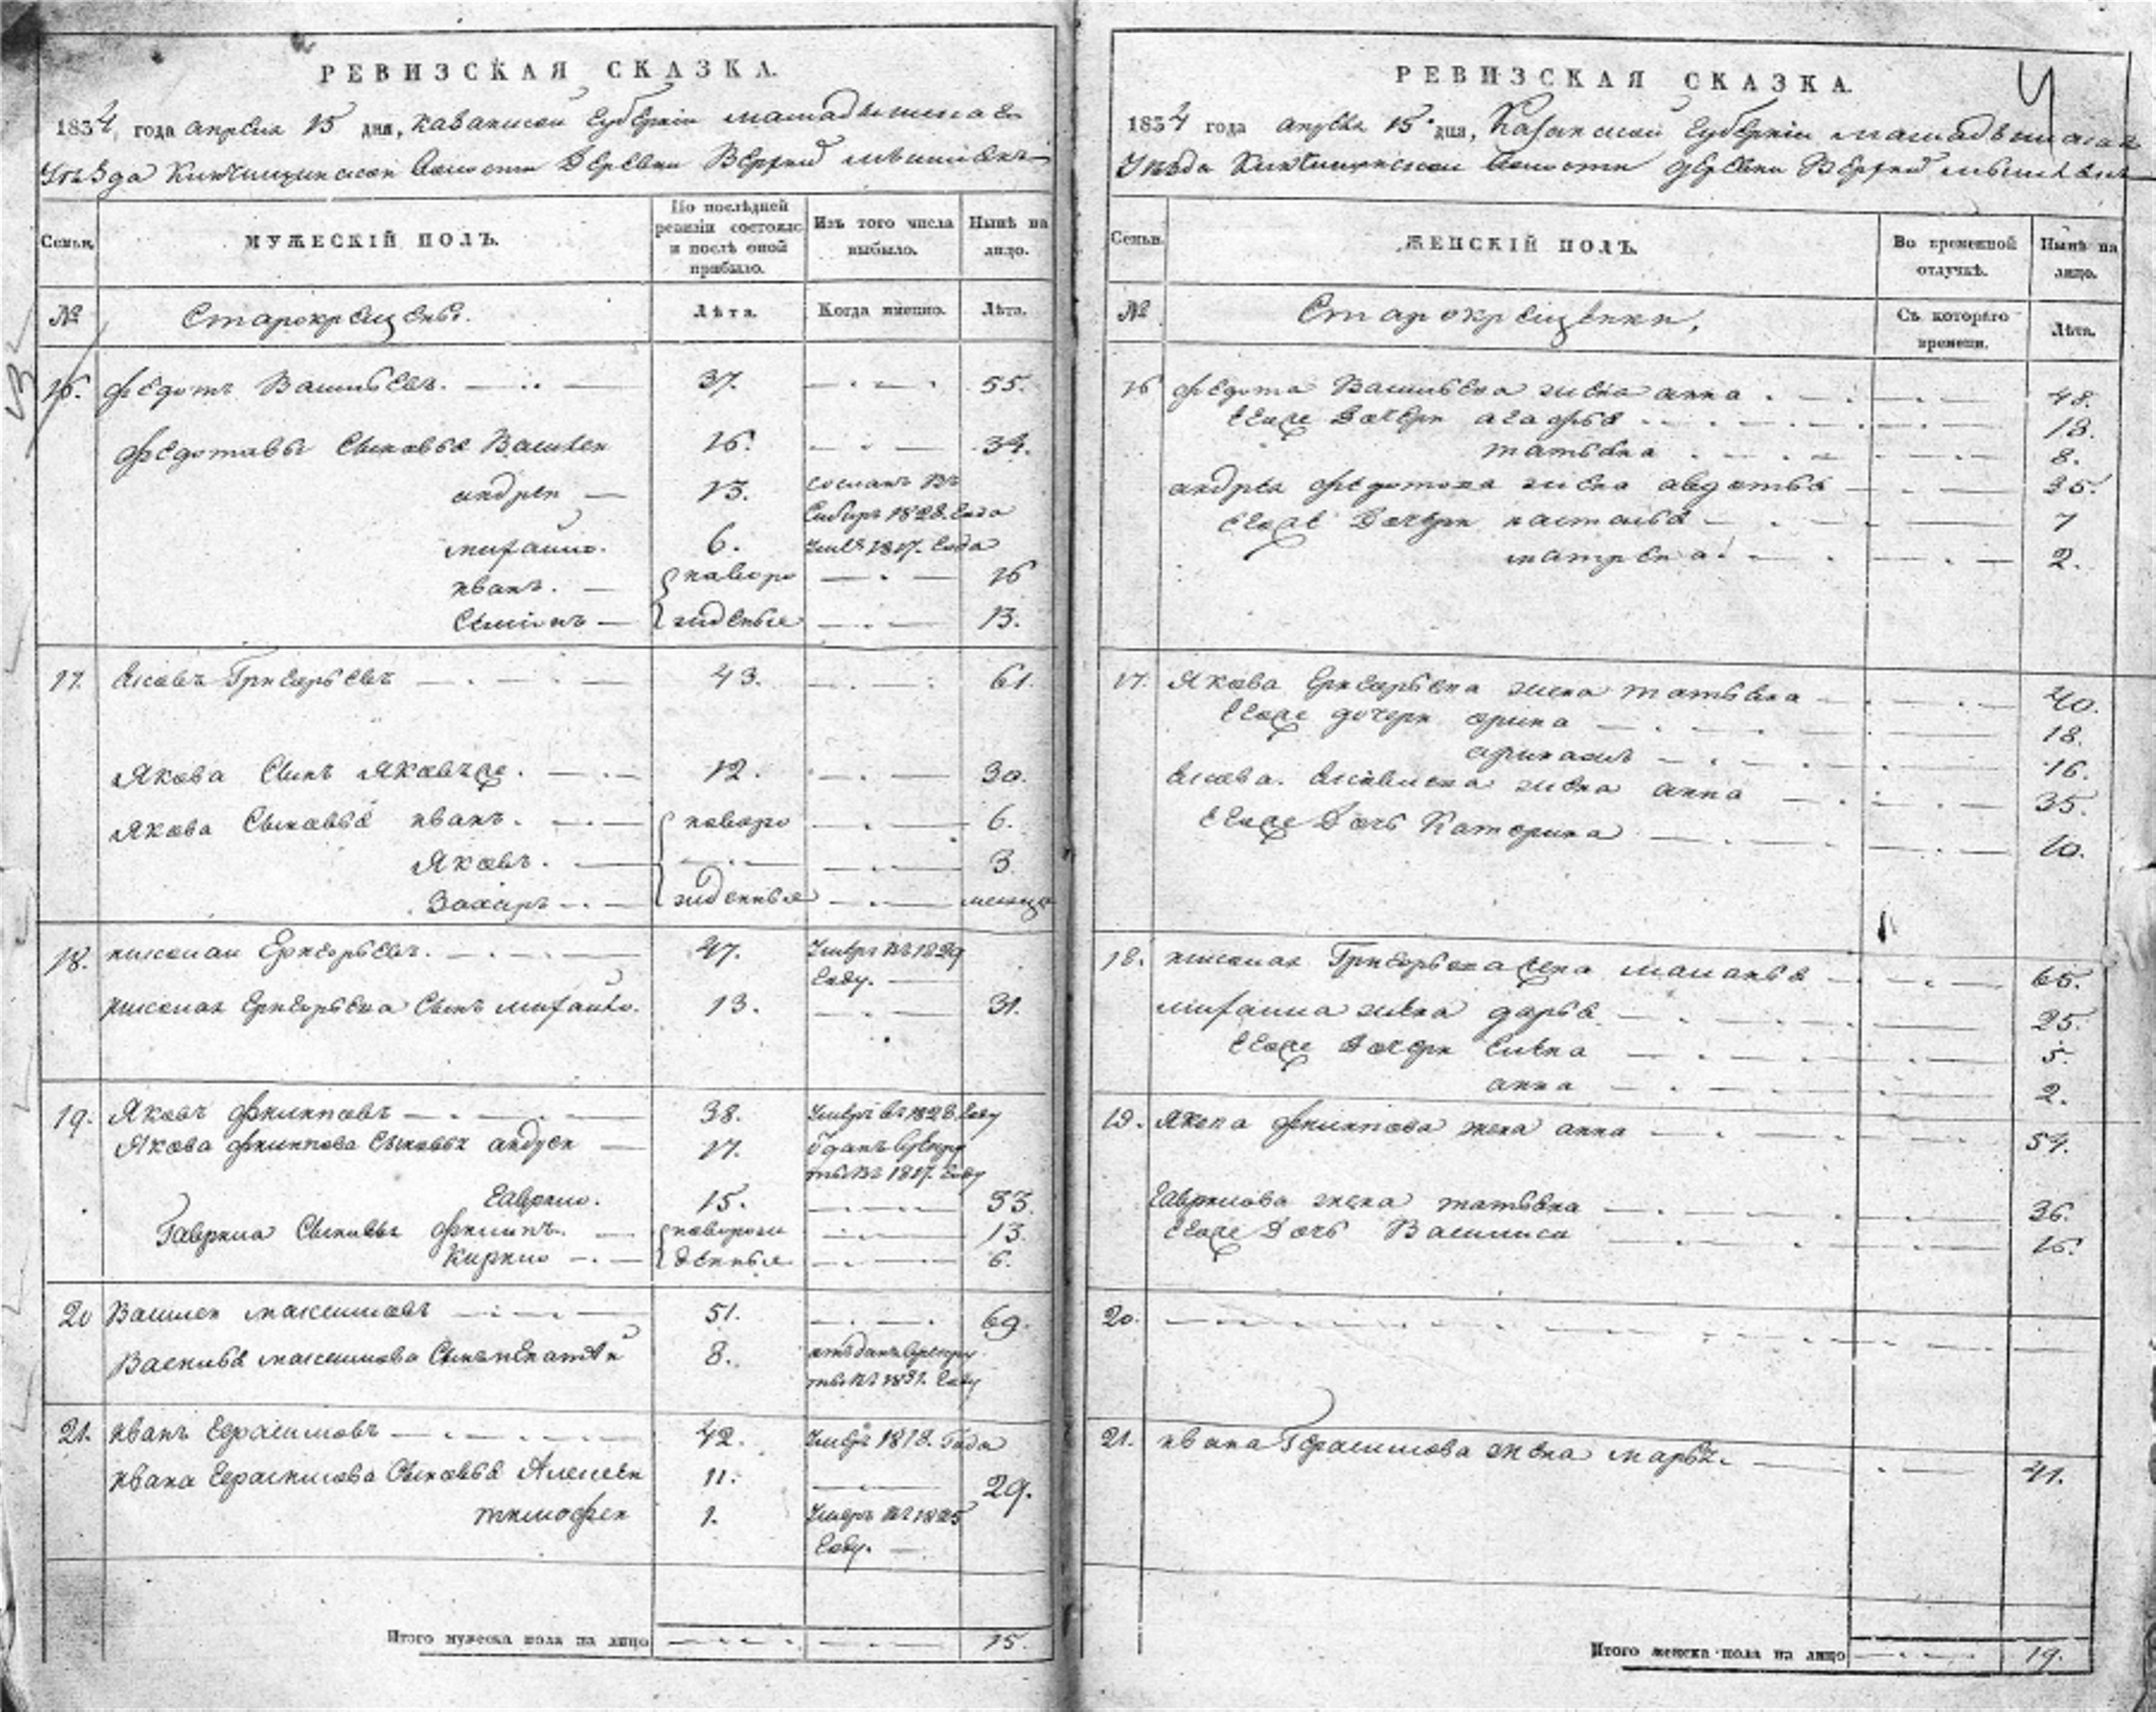 РЕВИЗСКАЯ СКАЗКА.
1834 года апреля 15 дня, казанской губернии мамадышскаго
Уѣзда Волости Деревни Верхней
Семьи.
МУЖЕСКІЙ ПОЛЪ.
По послѣдней ревизіи состояло и послѣ оной прибыло.
Изъ того числа выбыло.
Нынѣ на лицо.
№
Старокрещены.
Лѣта.
Когда именно.
Лѣта.
16. федотъ Васильевъ. 37. 55.
федотавы Сыновья Василеи 16. 34.
андреи 13. сосланъ Въ
Сибирь 1828. года
михаило. 6. Умѣ 1817. года
иванъ. новоро 16
Семіонъ жденые 13.
17. Яковъ Григорьевъ 43. 61.
Якова Сынъ Яковъже. 12. 30.
Якова Сыновья иванъ. новоро 6.
Яковъ. 3
Захаръ жденныя месяца
18. николаи Григорьевъ. 47. Умеръ Въ 1829
году.
николая Григорьева Сынъ михаило. 13. 31.
19. Яковъ филиповъ 38. Умеръ въ 1828. году
Якова филипова Сыновья андреи 17. Оданъ врекру
ты въ 1817. году
гаврило. 15. 33.
Гаврила Сыновья филипъ. новорож 13.
Кирило денныя 6.
20 Василеи максимовъ 51. 69.
Василья максимова Сынъ игнатеи 8. отъданъ врекру
ты въ 1831. году
21. иванъ Герасимовъ 42. Умеръ 1818. Года
ивана Герасимова Сыновья Алексеи 11. 29.
тимофеи 1. Умеръ въ 1825
году.
Итого мужеска пола на лицо 15.
4
РЕВИЗСКАЯ СКАЗКА.
1834 года апреля 15 дня, Казанской губерніи мамадышскаго
Уѣзда Волости деревни Верхней
Семьи.
ЖЕНСКІЙ ПОЛЪ.
Во временной отлучкѣ.
Нынѣ на лицо.
№
Старокрещенки.
Съ котораго времени.
Лѣта.
16 федота Васильева жена анна 48.
Егоже Дочери агафья 18.
татьяна 8.
андрея федотова жена авдотья 25.
Егоже Дочери настасья 7
матрена 2.
17. Якова Григорьева жена татьяна 40.
Егоже дочери орина 18.
16.
Якова. Яковлева жена анна 35.
Егоже Дочь Катерина 10.
18. николая Григорьева жена маланья 65.
михаила жена дарья 25.
Егоже Дочери 5.
анна 2.
19. Якова филипова жена анна 54.
Гаврилова жена татьяна 36.
Егоже Дочь Василиса 16.
20.
21. ивана Герасимова жена марья. 41.
Итого женска пола на лицо 19.